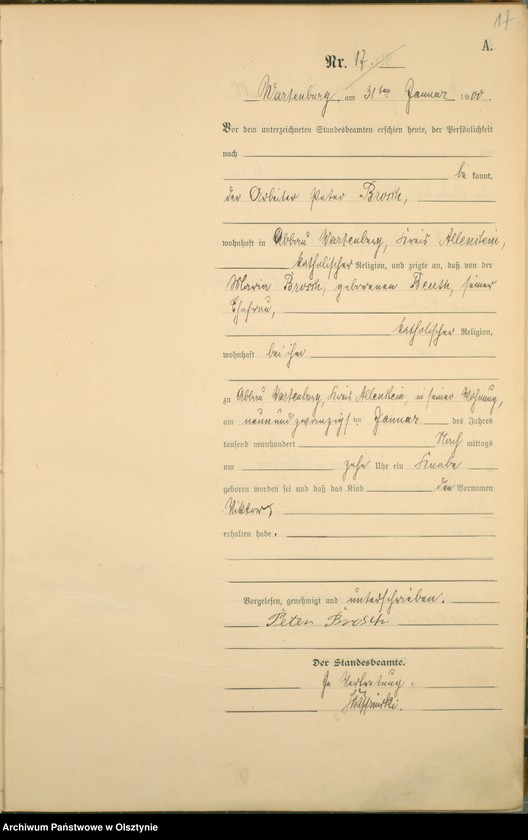 17
A.
Nr. 17.
Wartenburg, am 31ten Januar 1900.
Vor dem unterzeichneten Standesbeamten erschien heute, der Persönlichkeit
nach
be kannt,
der Arbeiter Peter Brosch,
wohnhaft in Abbau Wartenburg, Kreis Allenstein,
katholischer Religion, und zeigte an, daß von der
Maria Brosch, geborenen seiner
Ehefrau,
katholischer Religion,
wohnhaft bei ihm
zu Abbau Wartenburg, Kreis Allenstein, in seiner Wohnung,
am neunundzwanzigsten Januar des Jahres
tausend neunhundert Nach mittags
um zehn Uhr ein Knabe
geboren worden sei und daß das Kind den Vornamen
Viktor,
erhalten habe.
Vorgelesen, genehmigt und unterschrieben.
Peter Brosch
Der Standesbeamte.
In Vertretung.
Archiwum Państwowe w Olsztynie